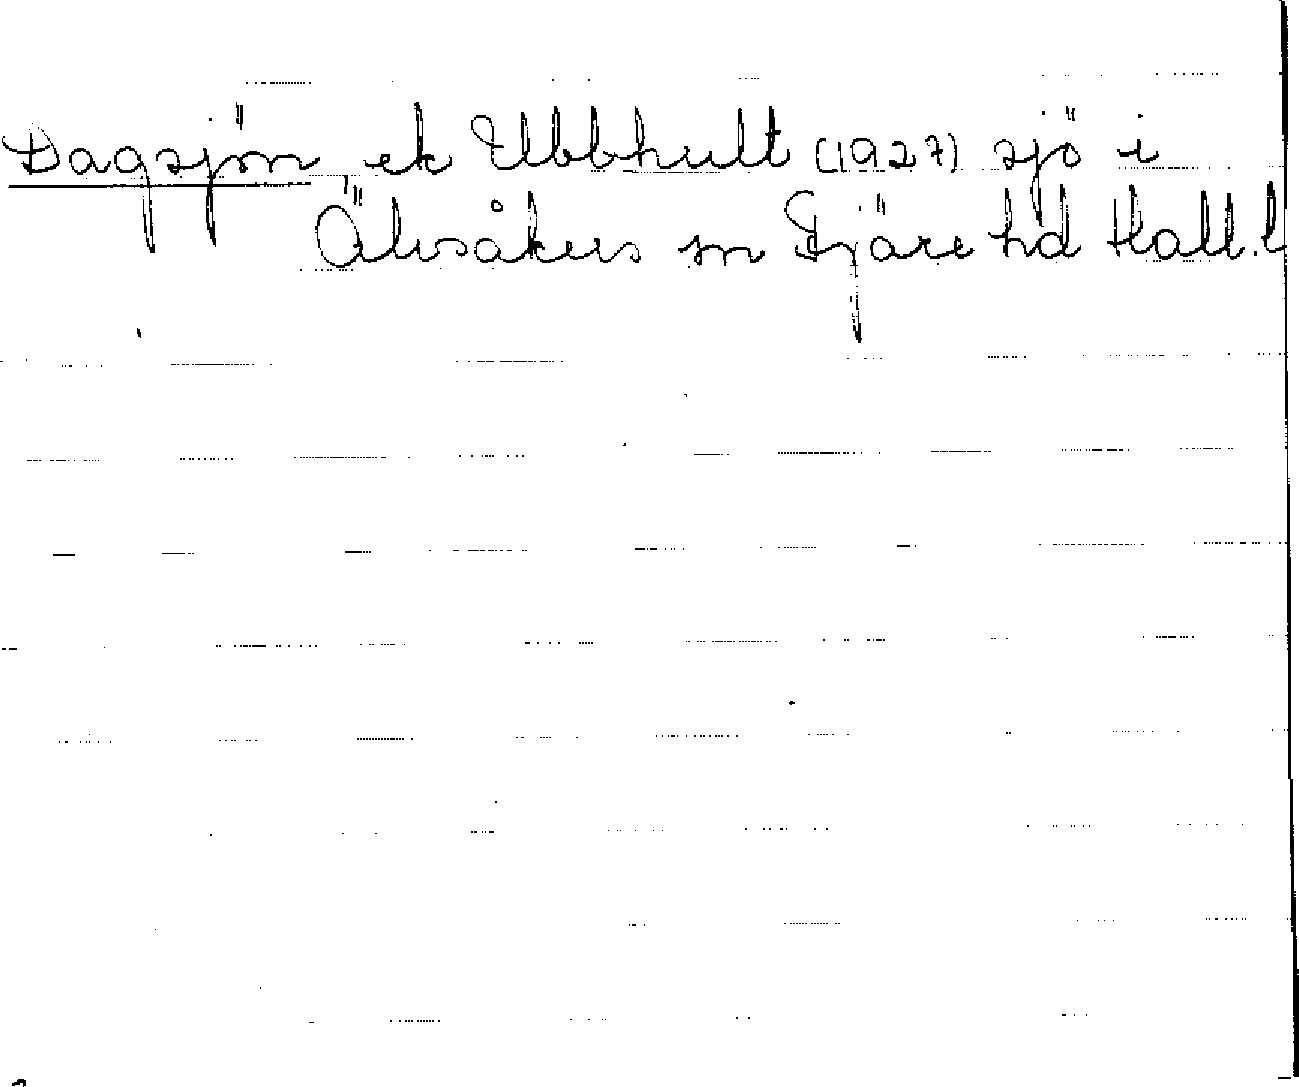 Dagsjön ek Ubbhult (1927) sjö i
Älvsåkers sn Fjäre hd Hall. l